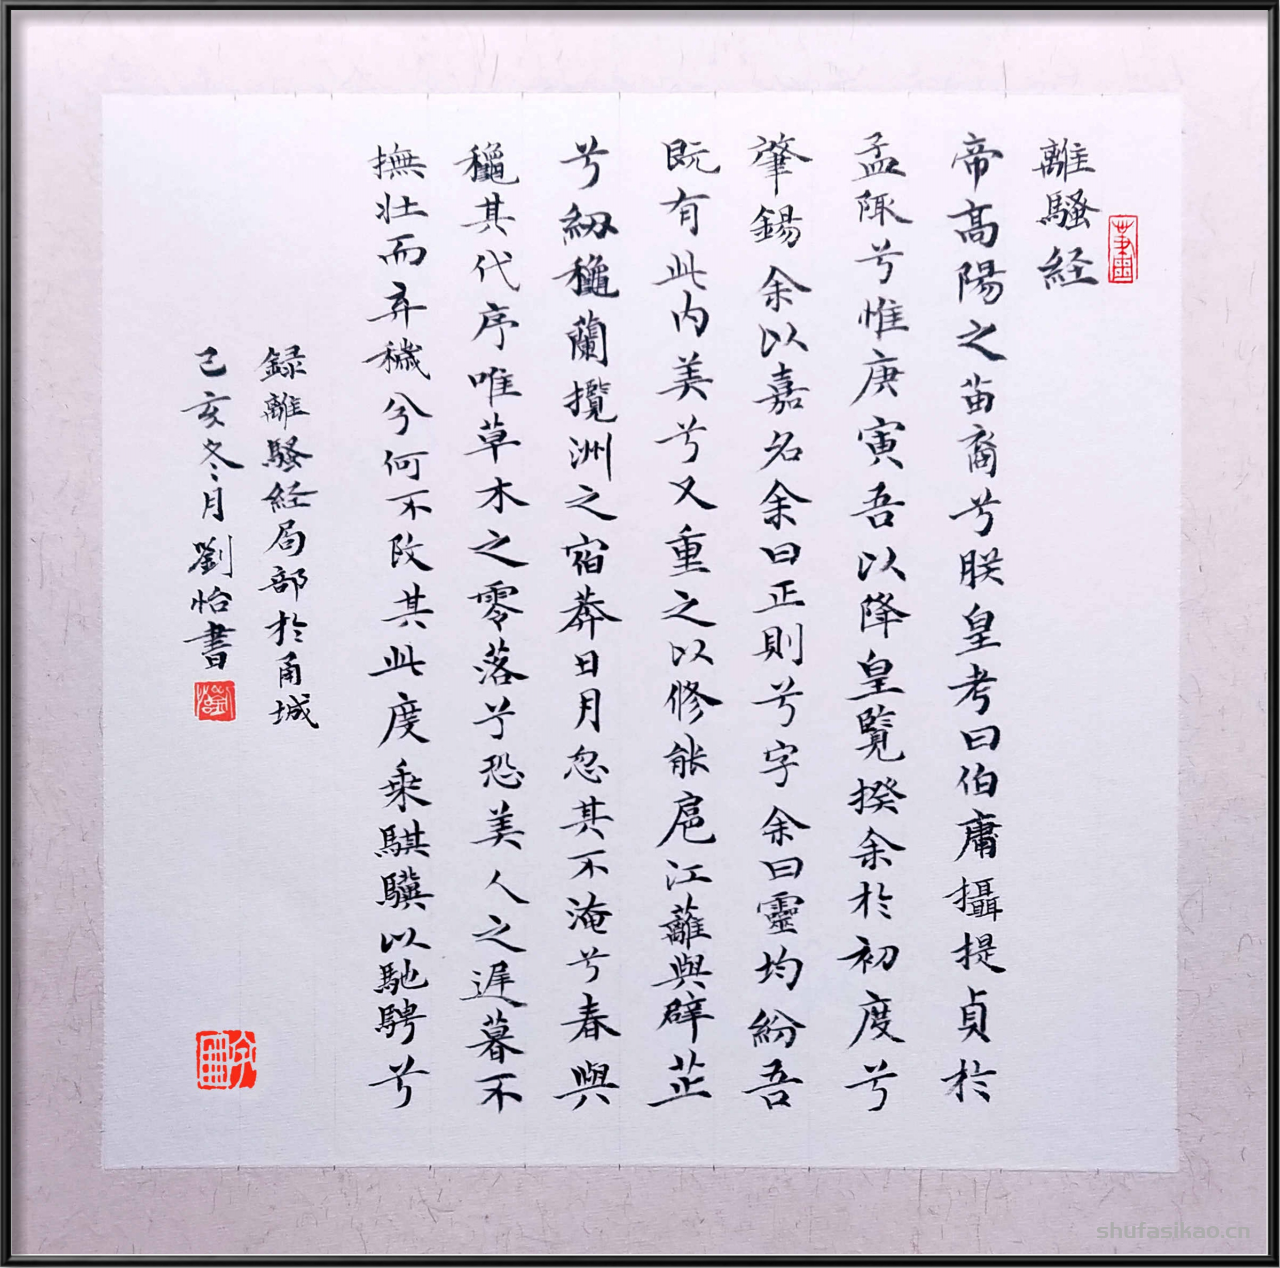 離騷経
帝高陽之苗裔兮朕皇考曰伯庸攝提貞於
孟陬兮惟庚寅吾以降皇覽揆余於初度兮
肇錫余以嘉名余曰正則兮字余曰靈均紛吾
既有此内美兮又重之以修能扈江蘺與辟芷
兮紉龝蘭攬洲之宿莽日月忽其不淹兮春與
龝其代序唯草木之零落兮恐美人之遲暮不
撫壯而弃穢兮何不改其此度乘騏驥以馳騁兮
録離騷経局部於甬城
己亥冬月劉怡書
shufasikao.cn